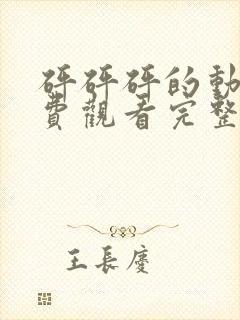 砰砰砰的動
費觀看完整
王長慶